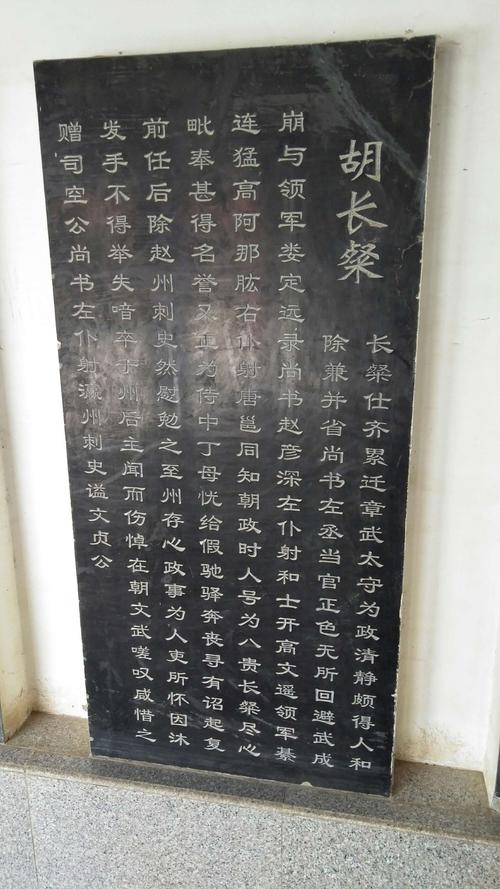 胡长粲
长粲仕齐累迁章武太守为政清静颇得人和
除兼并省尚书左丞当官正色无所回避武成
崩与领军娄定远录尚书赵彦深左仆射和士开高文遥领军綦
连猛高阿那肱右仆射唐邕同知朝政时人号为八贵长粲尽心
毗奉甚得名誉又正为侍中丁母忧给假驰驿奔丧寻有诏起复
前任后除赵州刺史然慰勉之至州存心政事为人吏所怀因沐
发手不得举失喑卒于州后主闻而伤悼在朝文武嗟叹咸惜之
赠司空公尚书左仆射瀛州刺史谥文贞公